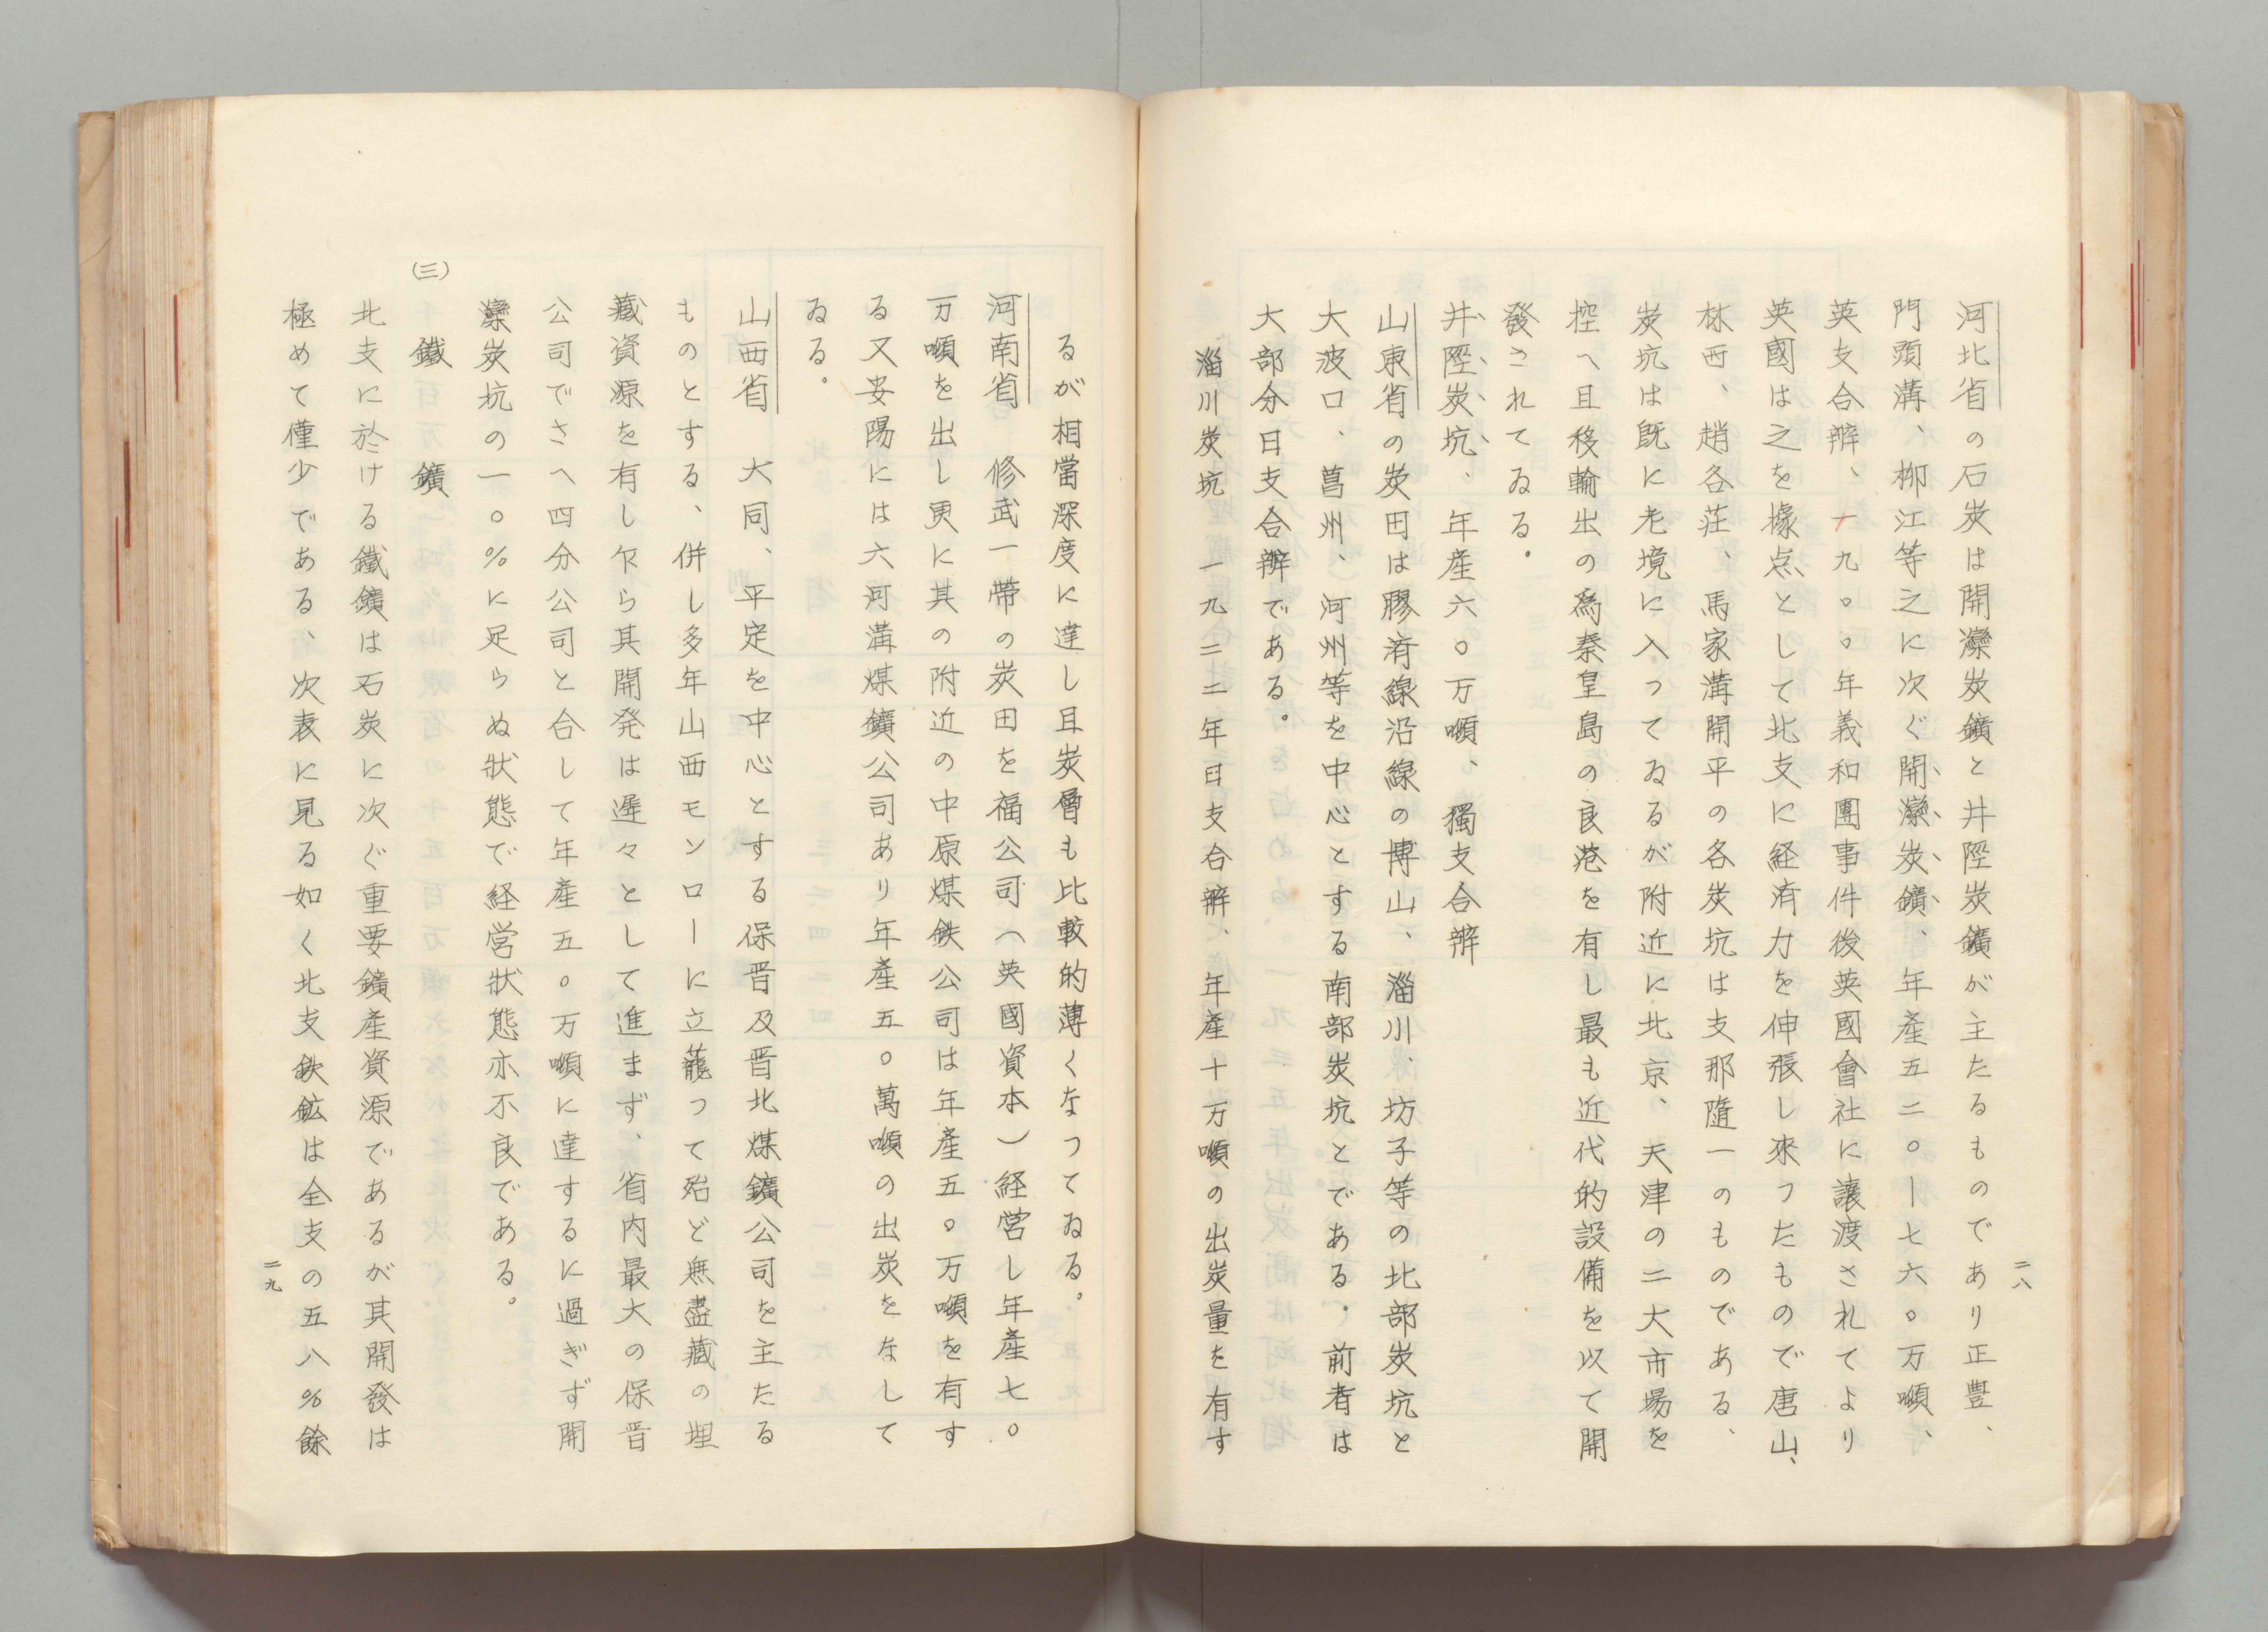 河北省の石炭は開灤炭鑛と井陘炭鑛が主たるものであり正豊、
門頭溝、柳江等之に次ぐ開灤炭鑛、年産五二〇ー七六〇万噸、
英支合辦、一九〇〇年義和團事件後英國會社に讓渡されてより
英國は之を據点として北支に経済力を伸張し来つたもので唐山、
林西、趙各荘、馬家溝開平の各炭坑は支那隨一のものである、
炭坑は既に老境に入つてゐるが附近に北京、天津の二大市場を
控へ且移輸出の為秦皇島の良港を有し最も近代的設備を以て開
發されてゐる。
井陘炭坑、年産六〇万噸、獨支合辦
山東省の炭田は膠済線沿線の博山、淄川、坊子等の北部炭坑と
大波口、莒州、河州等を中心とする南部炭坑とである。前者は
大部分日支合辦である。
淄川炭坑　一九二二年日支合辦、年産十万噸の出炭量を有す
二八
るが相當深度に達し且炭層も比較的薄くなつてゐる。
河南省　修武一帶の炭田を福公司（英國資本）経営し年産七〇
万噸を出し更に其の附近の中原煤鉄公司は年産五〇万噸を有す
る又安陽には六河溝煤鑛公司あり年産五〇萬噸の出炭をなして
ゐる。
山西省　大同、平定を中心とする保晋及晋北煤鑛公司を主たる
ものとする、併し多年山西モンローに立蘢つて殆ど無盡藏の埋
藏資源を有し乍ら其開発は遲々として進まず、省内最大の保晋
公司でさへ四分公司と合して年産五〇万噸に達するに過ぎず開
灤炭坑の一〇％に足らぬ状態で経営状態亦不良である。
（三）　鐵　鑛
北支に於ける鐵鑛は石炭に次ぐ重要鑛産資源であるが其開發は
極めて僅少である、次表に見る如く北支鉄鉱は全支の五八％餘
二九